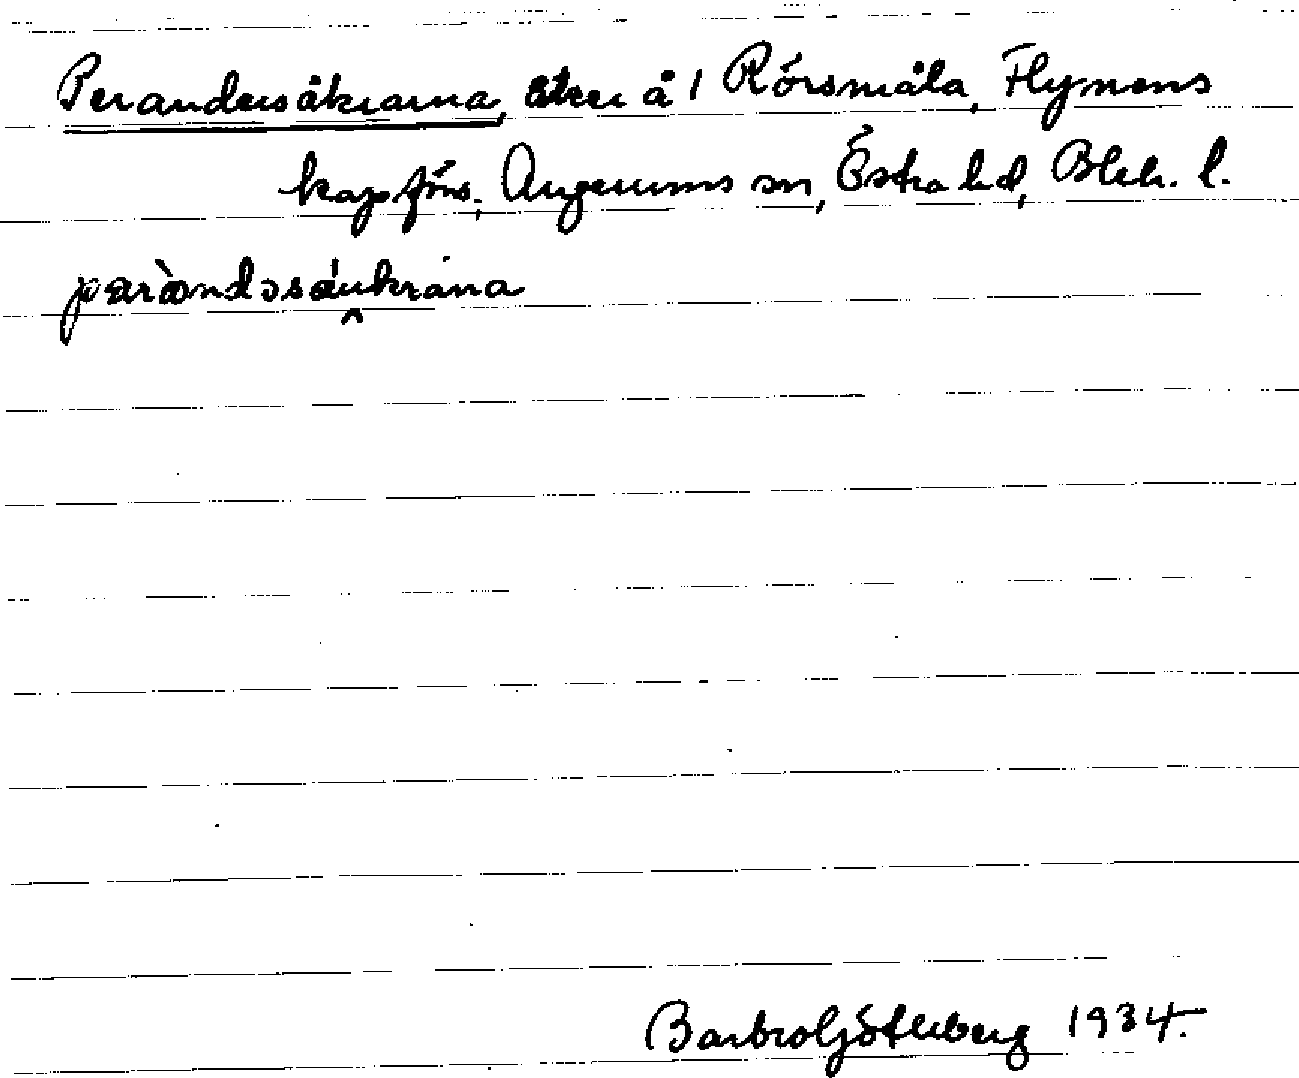 Perandersåkrarna, åker å 1 Rörsmåla, Flymens
kapförs., Augerums sn, Östra hd, Blek. l.
paràndəsáukrana
Barbro Göterberg 1934.